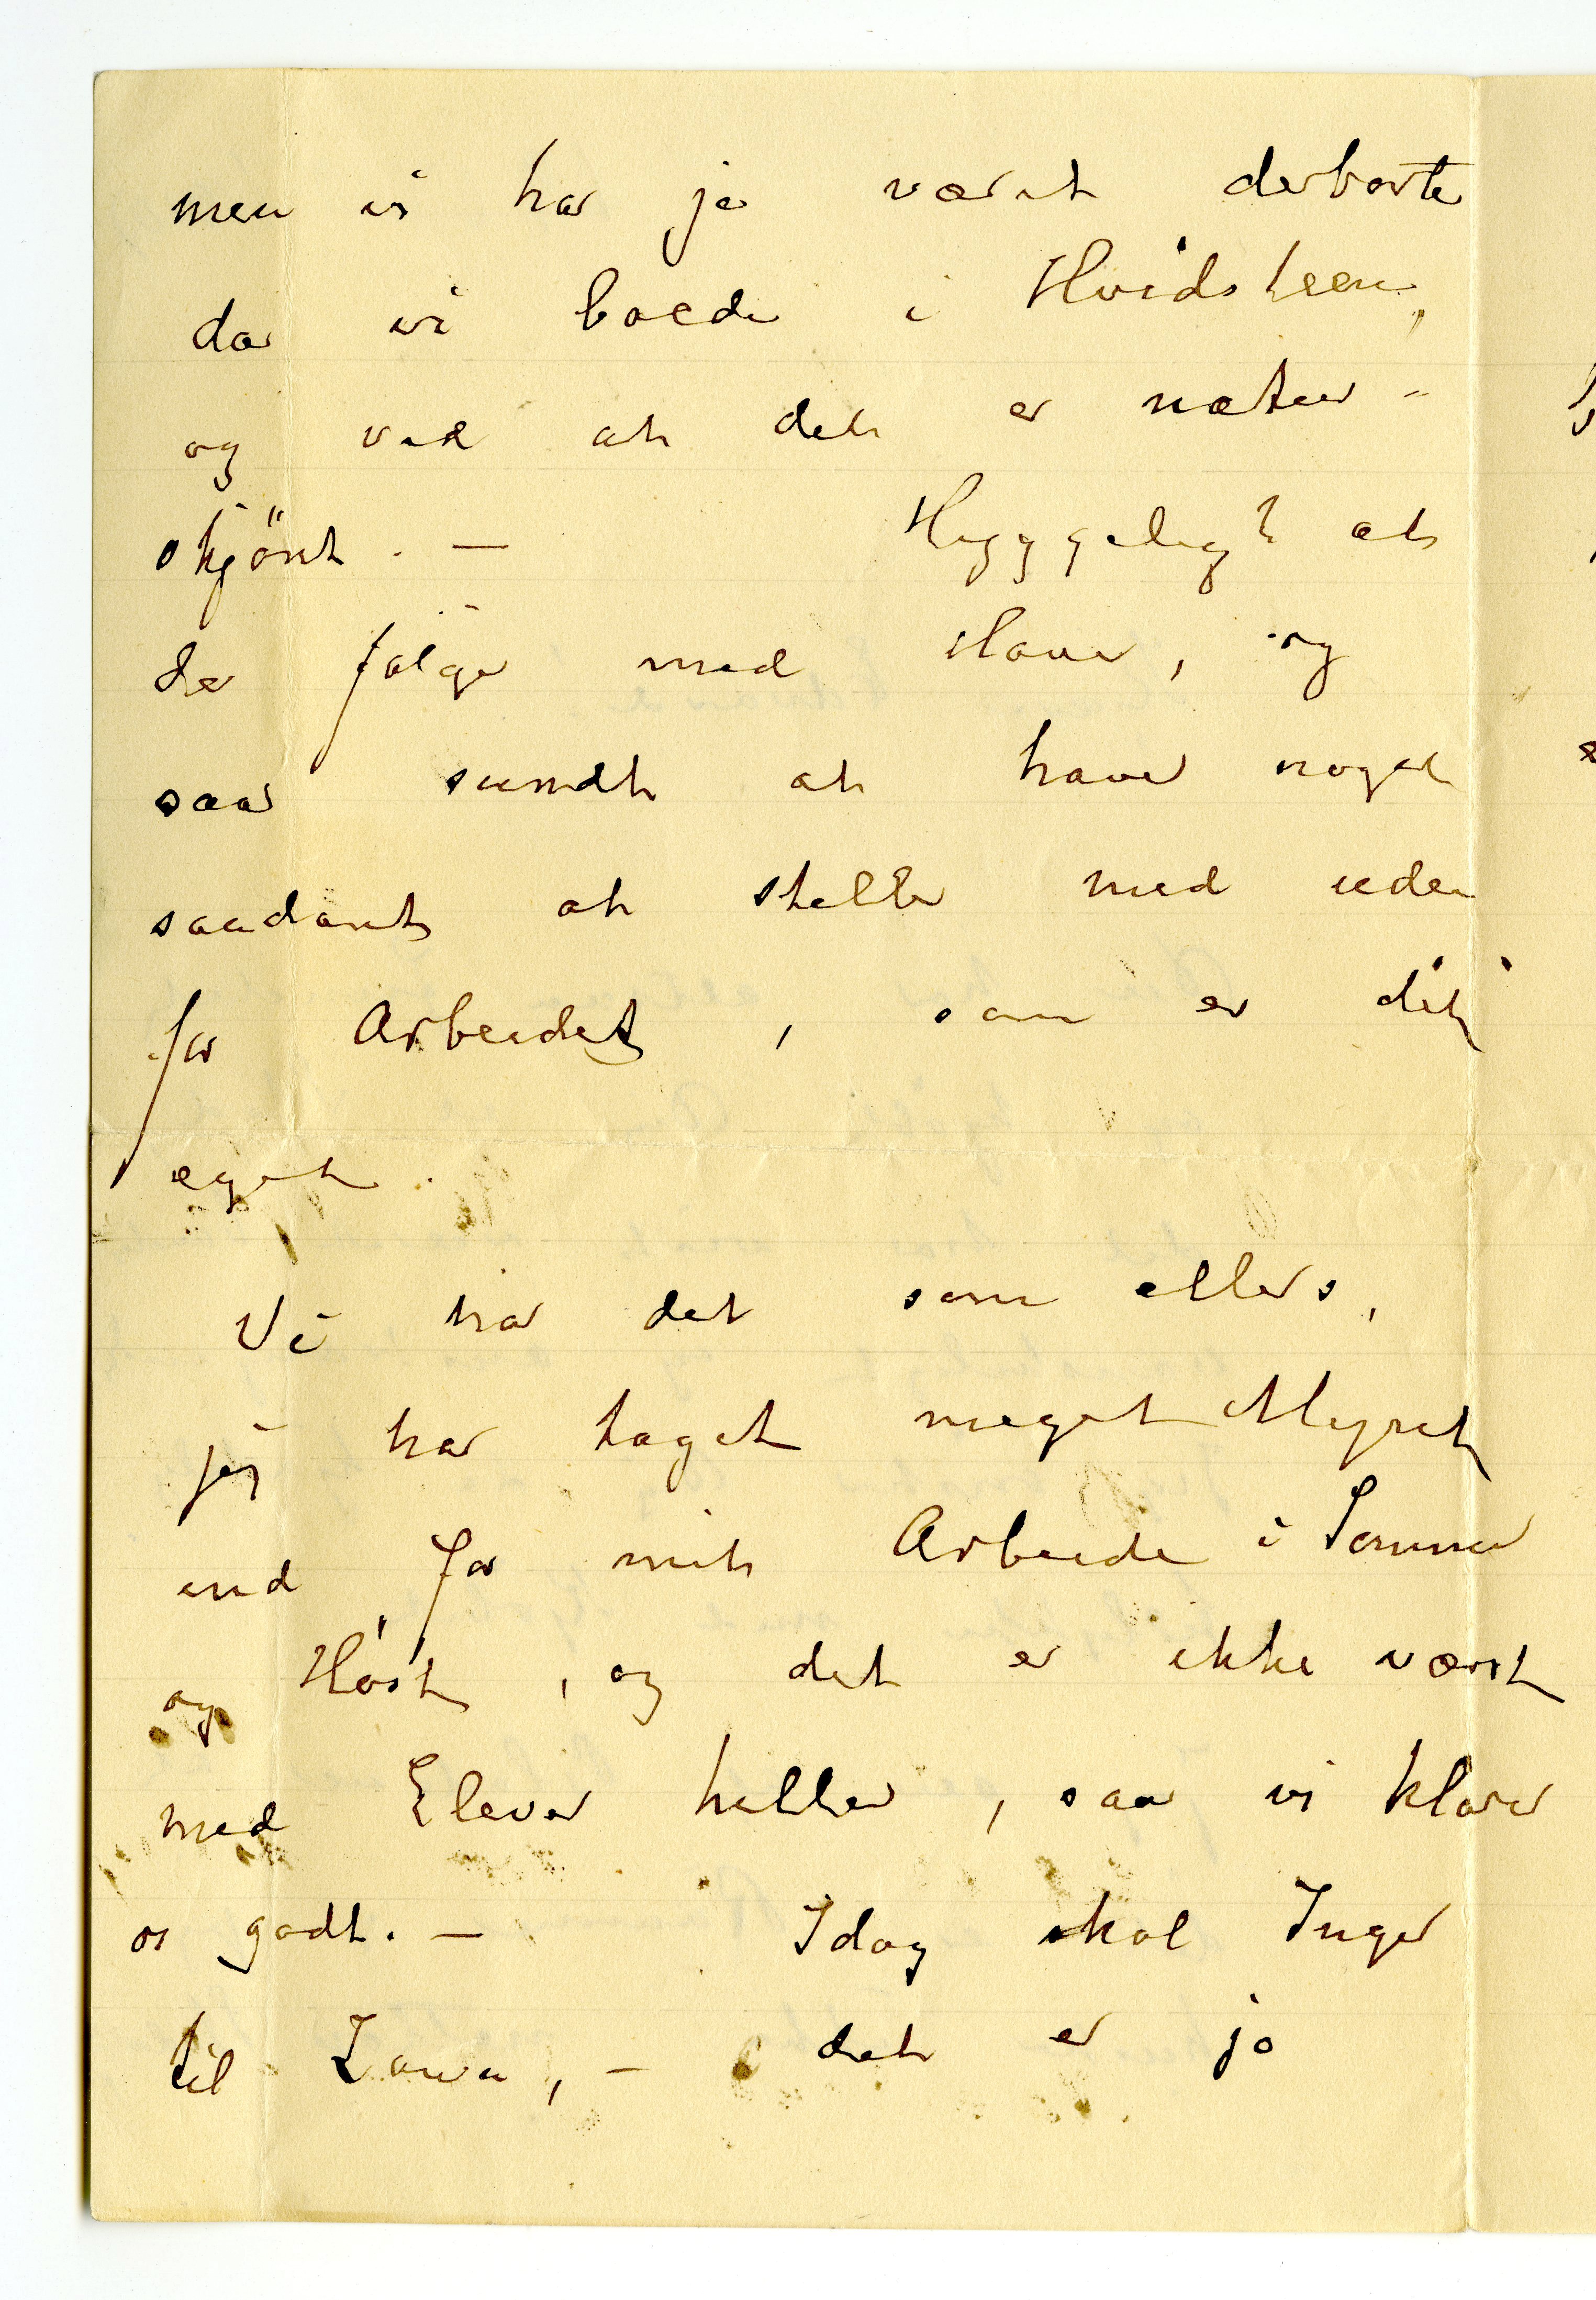 men vi har jo været derborte
da vi boede i Hvidsteen,
og ved at det er natur-
skjönt. — Hyggeligt at
der følger med Have, og
saa sundt at have noget
saadant at stelle med uden
for Arbeidet, som er dit
eget.
Vi har det som ellers,
jeg har taget meget Mynt
ind for mit Arbeide i Sommer
og Höst, og det er ikke værst
med Elever heller, saa vi klarer
os godt. — Idag skal Inger
til — det er jo